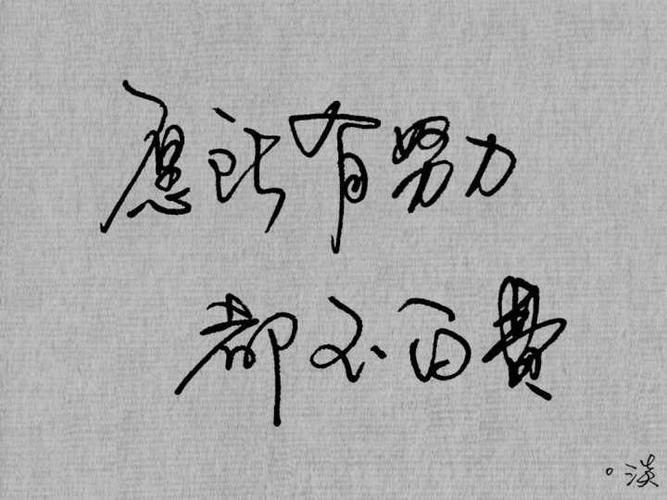 愿所有努力
都不白费
。淡